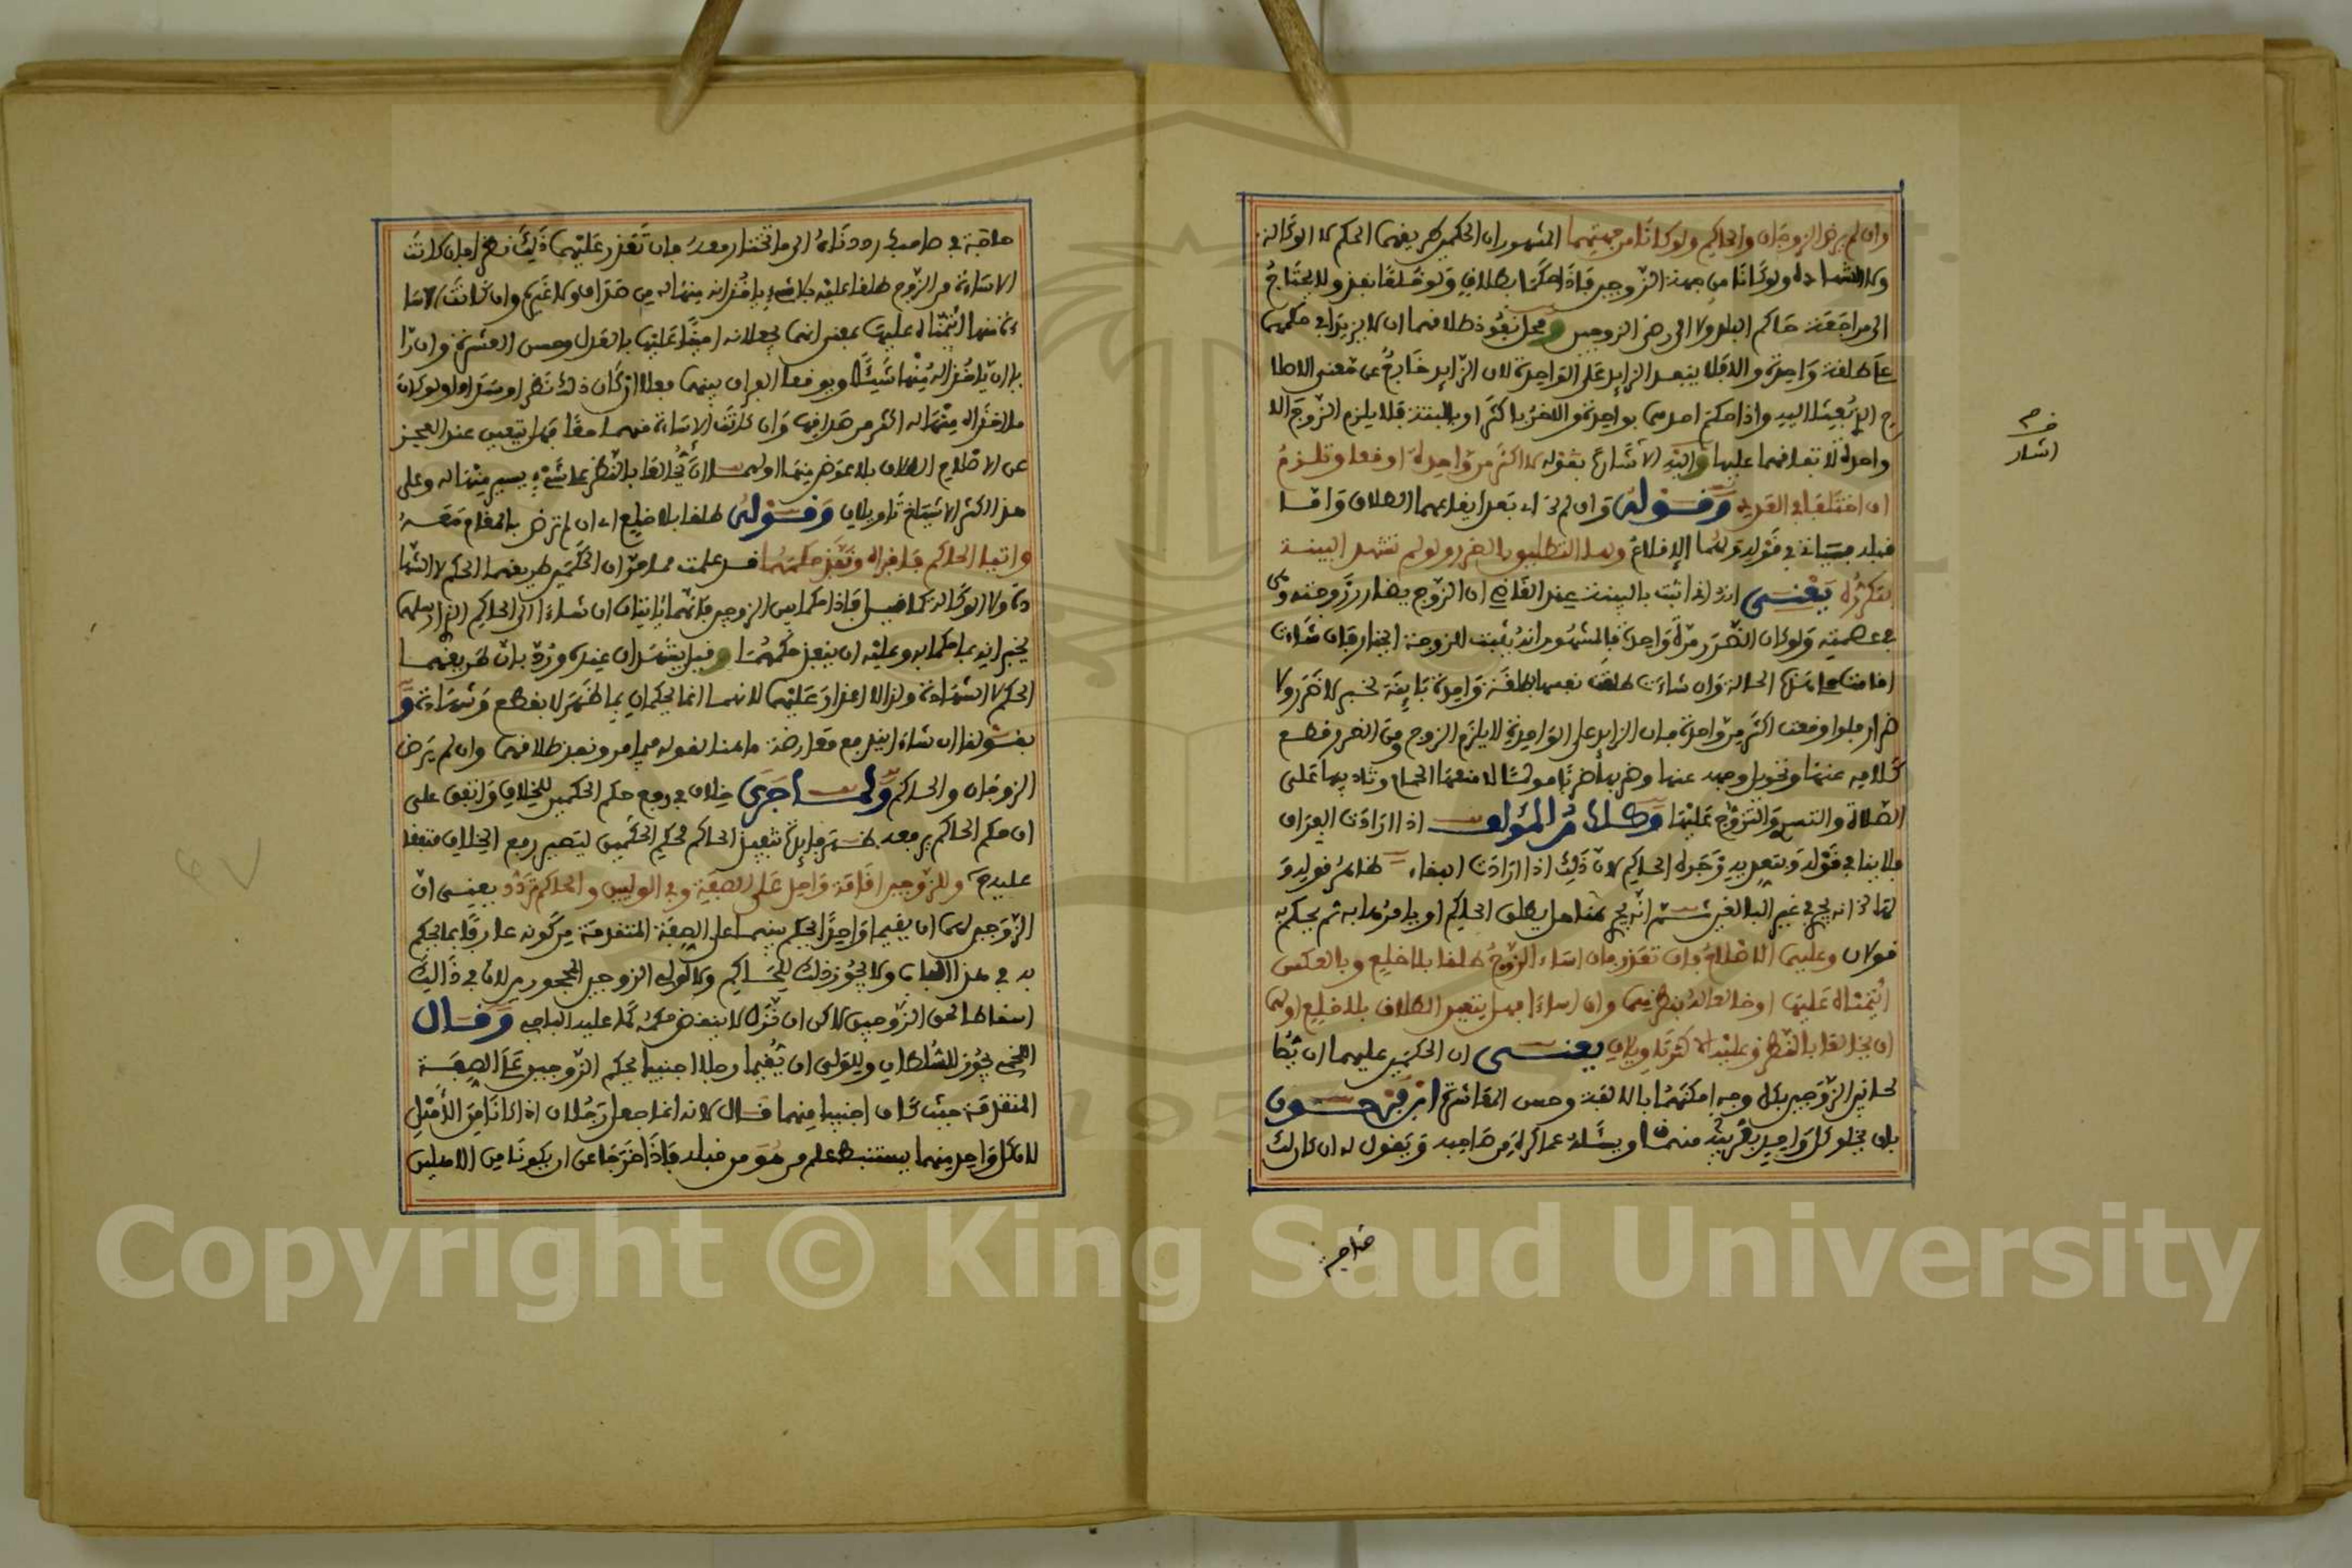 وان لم يرض الزوجان والحاكم ولو كانا من جهتهما المشهور ان الحكمين طريقهما الحكم لا الوكالة
ولا الشهادة ولو كانا من جهة الزوجين فاذا حكما بطلاق ولو خلعا نفذ ولا يحتاج
الى مراجعة حاكم البلد ولا الى رضى الزوجين ومحل نفوذ طلاقهما ان لا يزيدا في حكمهما
على طلقة واحدة والا فلا ينفذ الزايد على الواحدة لان الزايد خارج عن معنى الاصلا
ح الذي بعثا اليه واذا حكم احدهما بواحدة والاخر باكثر او بالبتة فلا يلزم الزوج الا
واحدة لاتفاقهما عليها واليه الاشارة بقوله لا اكثر من واحدة اوقعا وتلزم
ان اختلفا في العدد وقوله وان لم ترد بعد ايقاعهما الطلاق واما
قبله فسياتي في قوله ولهما الاقلاع ولها التطليق بالضرر ولو لم تشهد البينة
بتكرره يعني انه اذا ثبت بالبينة عند القاضي ان الزوج يضار زوجته وهي
في عصمته ولو كان الضرر مرة واحدة فالمشهور انه يثبت للزوجة الخيار فان شاءت
اقامت على هذه الحالة وان شاءت طلقت نفسها بطلقة واحدة باينة لخبر لا ضرر ولا
ضرار فلو اوقعت اكثر من واحدة فان الزايد على الواحدة لا يلزم الزوج ومن الضرر قطع
كلامه عنها وتحويل وجهه عنها وضربها ضربا مولما لا منعها الحمام وتاديبها على
الصلاة والتسري والتزوج عليها وكلام المؤلف اذا ارادت الفراق
فلا ينافي قوله وبتعديه زجره الحاكم لان ذلك اذا ارادت البقاء ظاهر قوله و
لها انه يجري في غير البالغين ثم انه يجري هنا هل يطلق الحاكم او يامرها به ثم يحكم به
قولان وعليهما الاصلاح وان تعذر فان اساء الزوج طلقا بلا خلع وبالعكس
ائتمناه عليها او خالعا له بنظرهما وان اساءا فهل يتعين الطلاق بلا خلع او لهما
ان يخالعا بالنظر وعليه الاكثر تاويلان يعني ان الحكمين عليهما ان يصلحا
بين الزوجين بكل وجه امكنهما بالالفة وحسن المعاشرة ابن فرحون
بان يخلو كل واحد بقريبه منهما ويسأله عما كره من صاحبه ويقول له ان كان لك
فرم
اشار
حاجة
حاجة في صاحبك رددناه الى ما تختار معه فان تعذر عليهما ذلك نظرا فان كانت
الاساءة من الزوج طلقا عليه بلا شيء ياخذانه منها له من صداق ولا غيره وان كانت الاسا
ءة منها ائتمناه عليها بمعنى انهما يجعلانه امينا عليها بالعدل وحسن العشرة وان را
يا ان ياخذا له منها شيئا ويوقعا الفراق بينهما فعلا ان كان ذلك نظرا وسدادا ولو كان
ما اخذاه منها له اكثر من صداقها وان كانت الاساءة منهما معا فهل يتعين عند العجز
عن الاصلاح الطلاق بلا عوض منها او لهما ان يخالعا بالنظر على شيء يسير منها له وعلى
هذا اكثر الاشياخ تاويلان وقوله طلقا بلا خلع اي ان لم ترض بالمقام معه
واتيا الحاكم فاخبراه ونفذ حكمهما قد علمت مما مر ان الحكمين طريقهما الحكم لا الشها
دة ولا الوكالة كالقاضي فاذا حكما بين الزوجين فانهما ياتيان ان شاءا الى الحاكم الذي ارسلهما
يخبرانه بما حكما به وعليه ان ينفذ حكمهما وقيل يشهدان عنده ورد بان طريقهما
الحكم لا الشهادة ولذا لا اعذار عليهما لانهما انما يحكمان بما ظهر لا بقطع وشهادة و
بقولنا ان شاءا اندفع معارضة ما هنا لقوله فيما مر ونفذ طلاقهما وان لم يرض
الزوجان والحاكم ولما جرى خلاف في رفع حكم الحكمين للخلاف واتفق على
ان حكم الحاكم يرفعه ظهر فايدة تنفيذ الحاكم حكم الحكمين ليصير رفع الخلاف متفقا
عليه وللزوجين اقامة واحد على الصفة وفي الوليين والحاكم تردد يعني ان
الزوجين لهما ان يقيما واحدا يحكم بينهما على الصفة المتقدمة من كونه عارفا بما يحكم
به في هذا الباب ولا يجوز ذلك للحاكم ولا لولي الزوجين المحجورين لان في ذلك
اسقاطا لحق الزوجين لاكن ان نزل لا ينقض حكمه كما عليه الباجي وقال
اللخمي يجوز للسلطان وللولي ان يقيما رجلا اجنبيا يحكم الزوجين على الصفة
المتقدمة حيث كان اجنبيا منهما قال لانه انما جعل رجلان اذا كانا من الاهل
لان كل واحد منهما يستنبط علم من هو من قبله فاذا خرجا عن ان يكونا من الاهلين